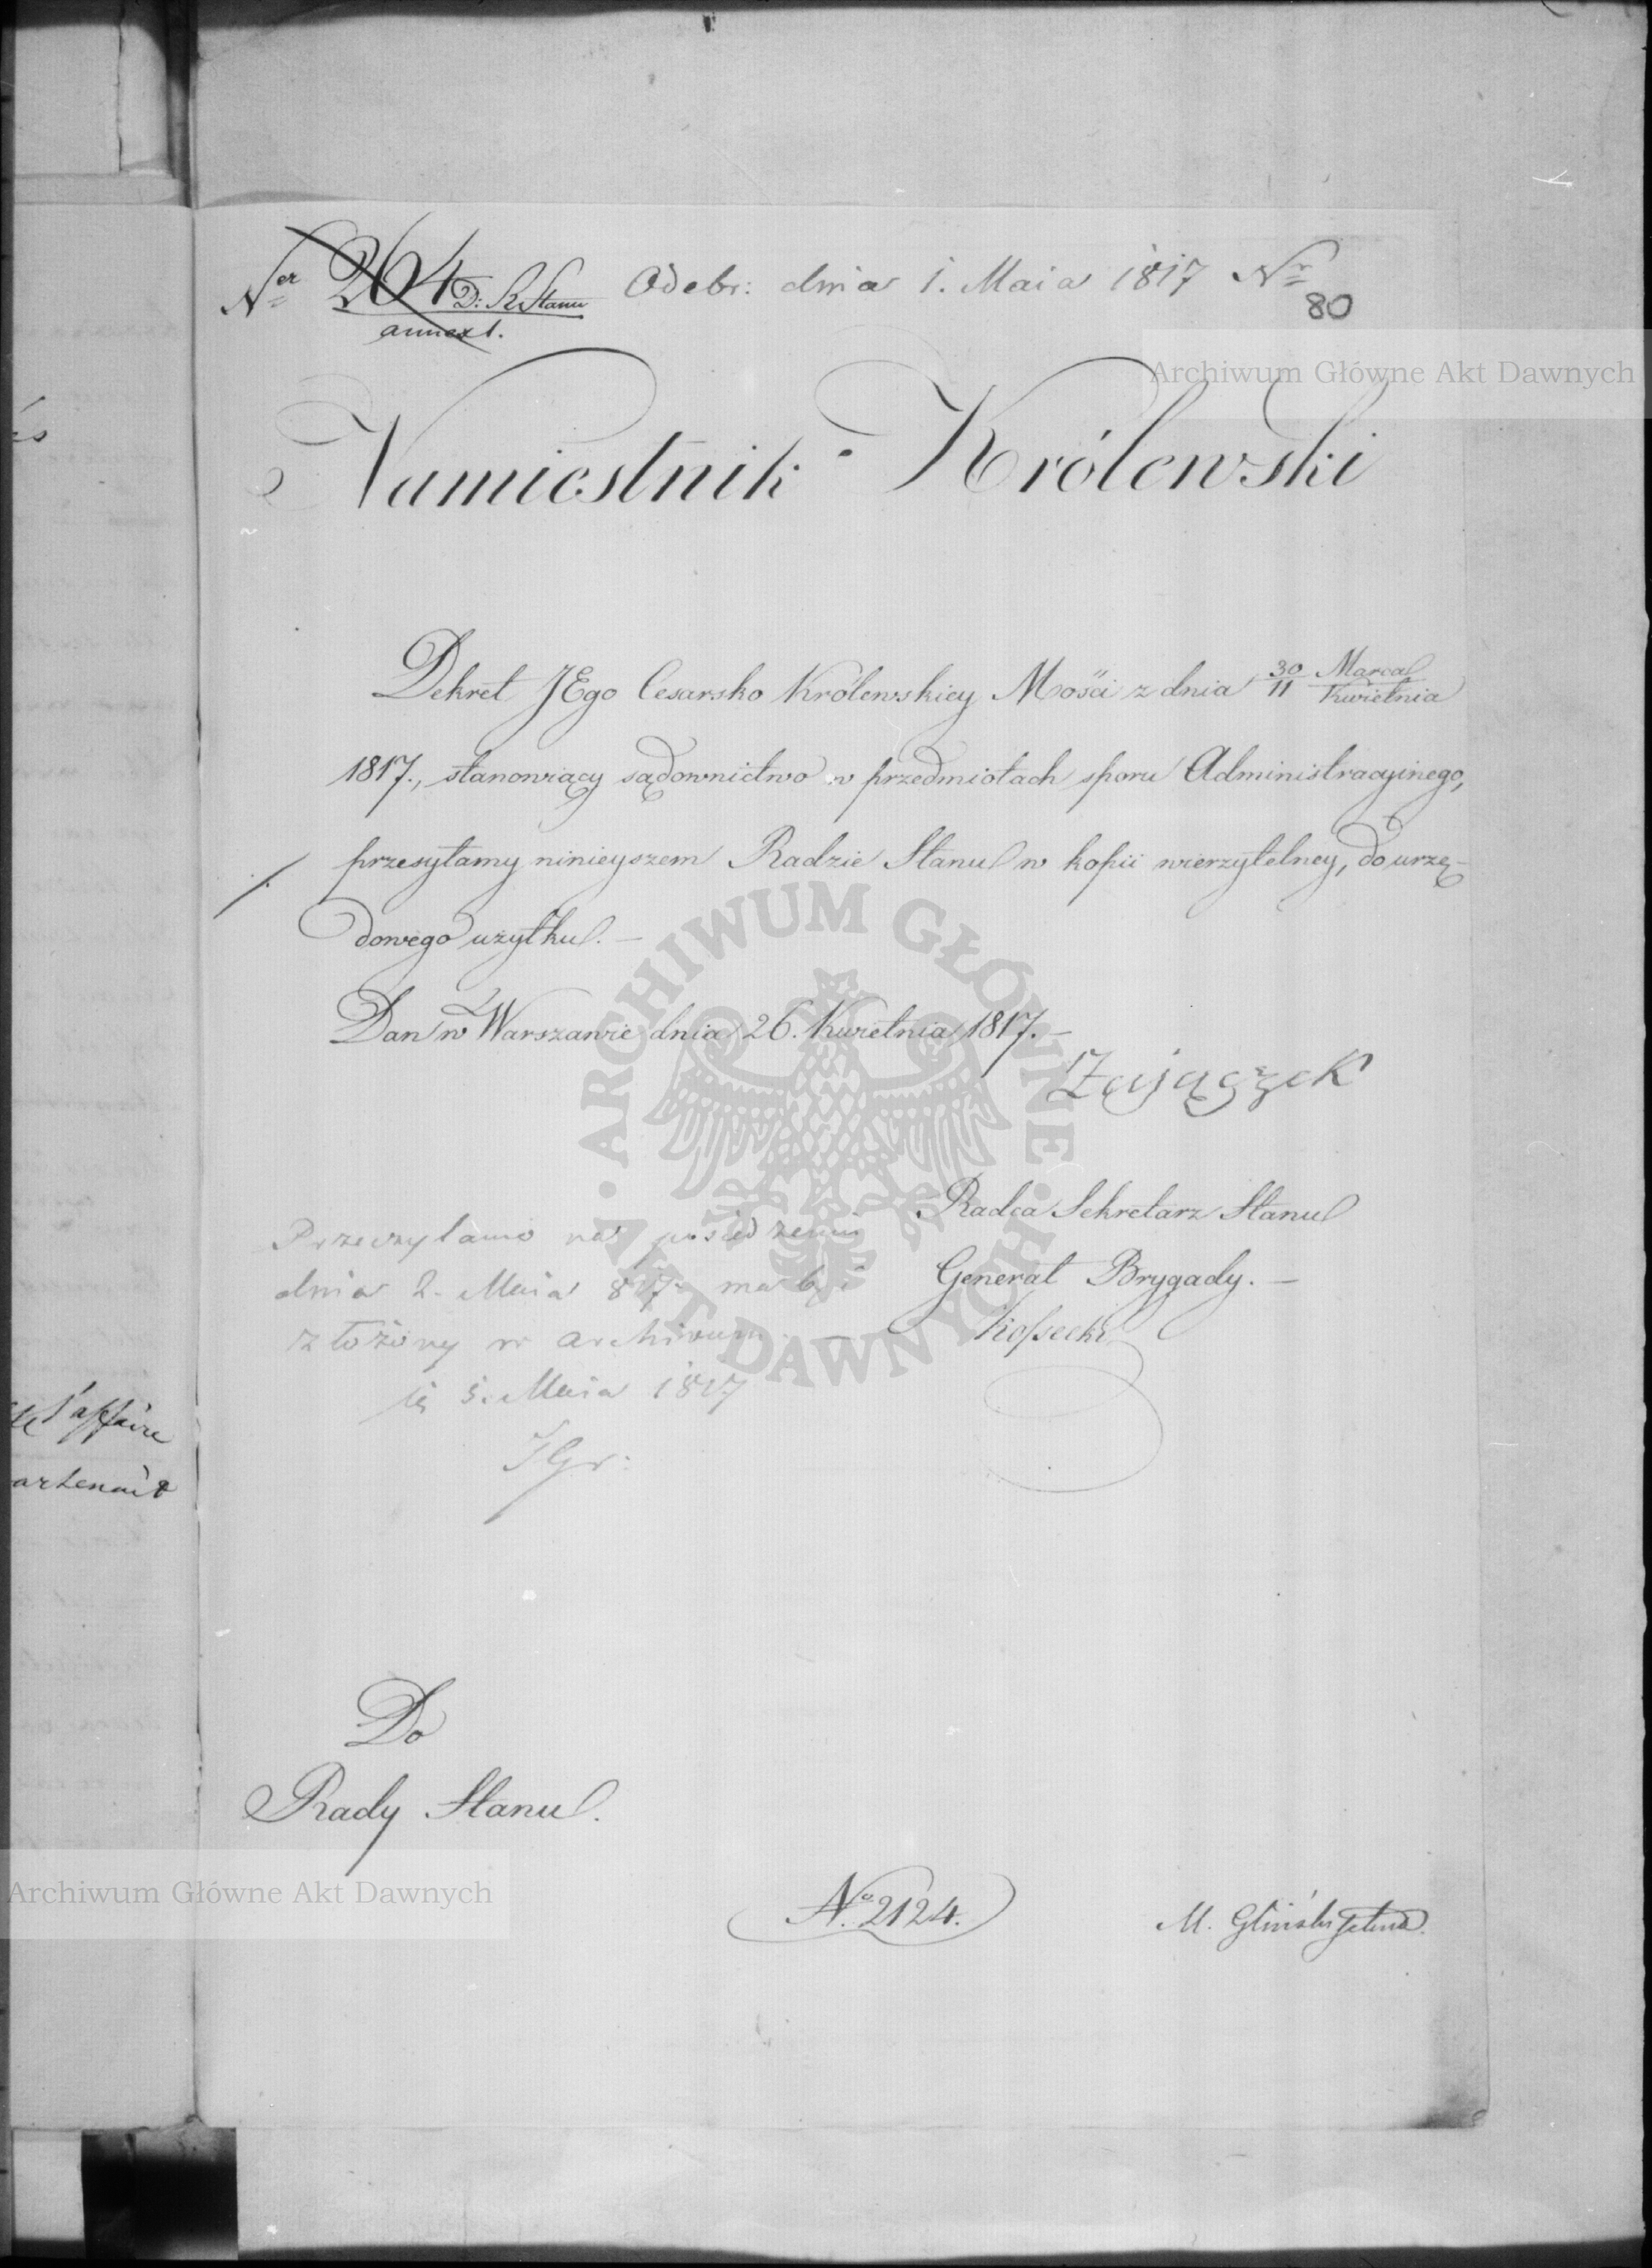 Ner 264 D: R. Stanu Odebr: dnia 1. Maia 1817 Nr
annex 1. 80
Archiwum Główne Akt Dawnych
Namiestnik Królewski
Dekret JEgo Cesarsko Królewskiey Mości z dnia 30/11 Marca/Kwietnia
1817., stanowiący sądownictwo w przedmiotach sporu Administracyinego,
przesyłamy ninieyszem Radzie Stanu w kopii wierzytelney, do urzę-
dowego użytku. —
Dan w Warszawie dnia 26. Kwietnia 1817. —
Zajączek
Radca Sekretarz Stanu
Generał Brygady. —
Kossecki
Przeczytano na posiedzeniu
dnia 2. Maia 817. ma być
złożony w archiwum
5. Maia 1817
JGr:
Do
Rady Stanu.
No. 2124.
M. Gliński
l'affaire
artenait
Archiwum Główne Akt Dawnych
ARCHIWUM GŁÓWNE AKT DAWNYCH